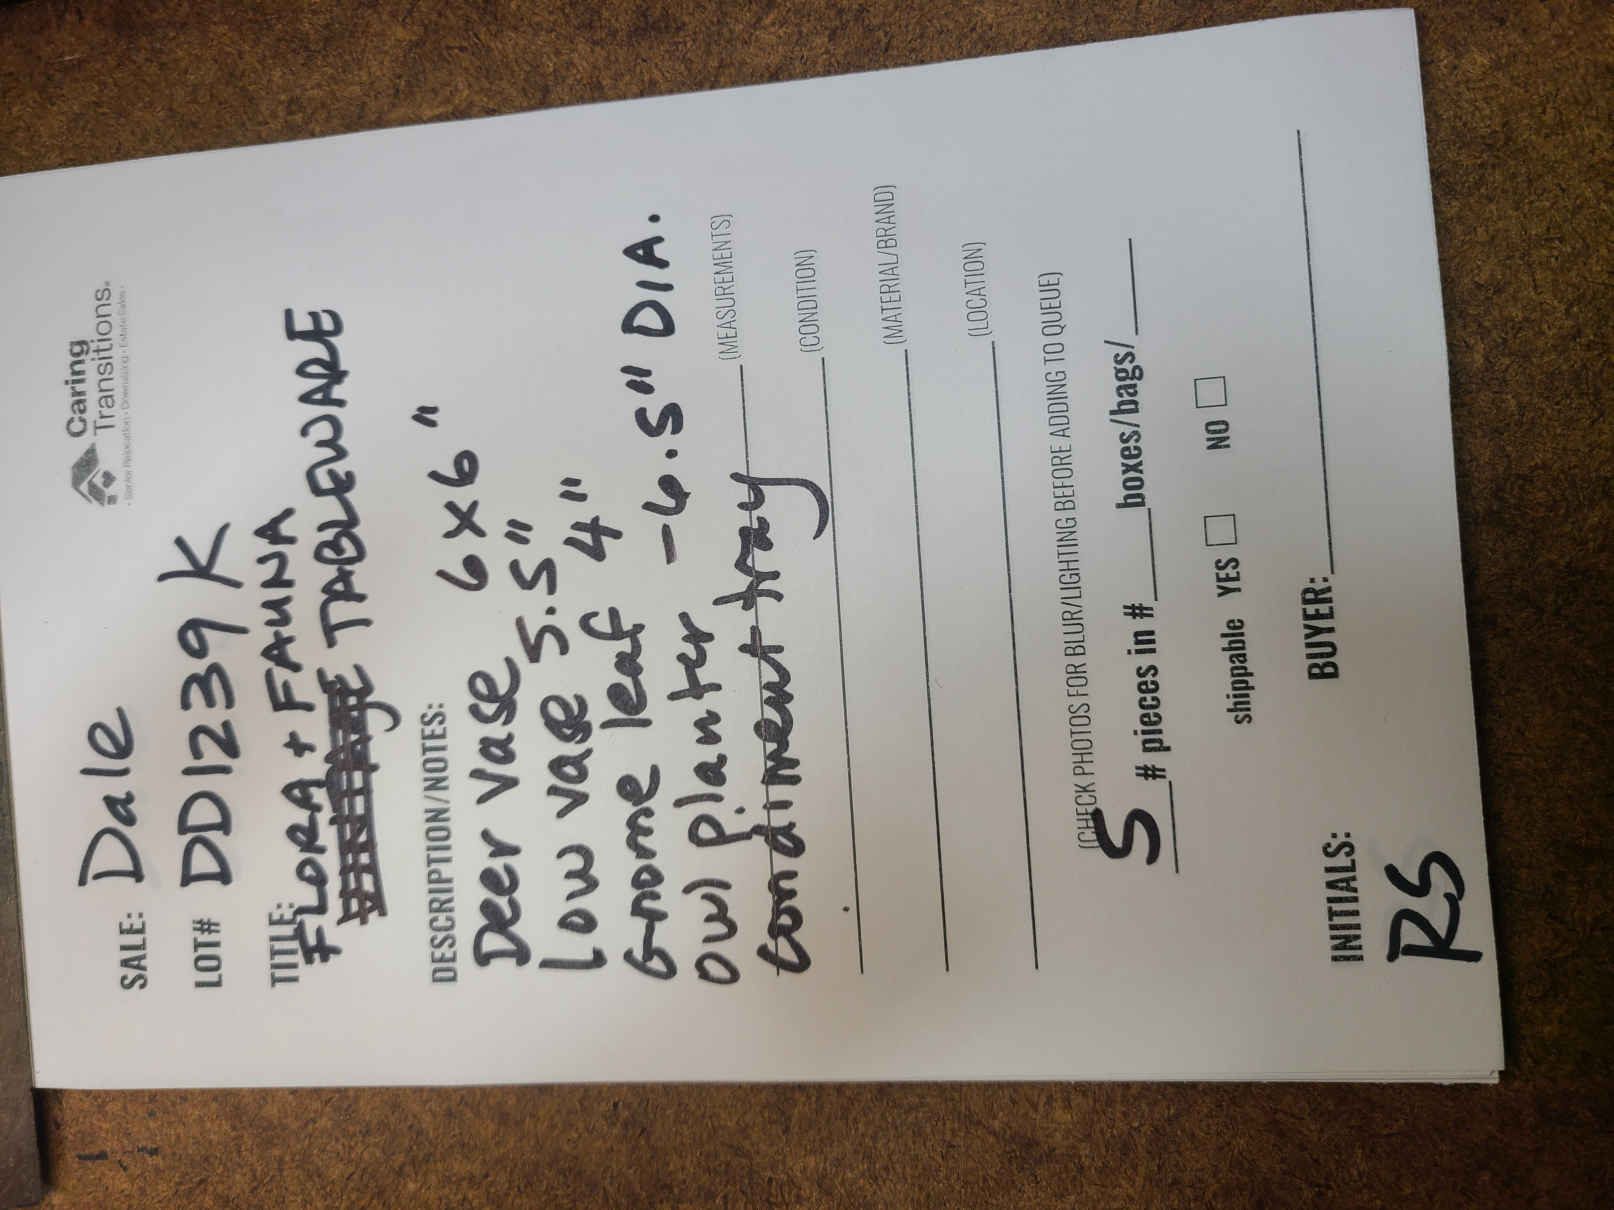 Caring
Transitions.
• Senior Relocation • Downsizing • Estate Sales •
SALE: Dale
LOT# DD1239K
TITLE:
FLORA + FAUNA
VINTAGE TABLEWARE
DESCRIPTION/NOTES:
Deer vase 6x6"
Low vase 5.5"
Gnome leaf 4"
Owl planter -6.5" DIA.
Condiment tray
(MEASUREMENTS)
(CONDITION)
(MATERIAL/BRAND)
(LOCATION)
(CHECK PHOTOS FOR BLUR/LIGHTING BEFORE ADDING TO QUEUE)
5 # pieces in # boxes/bags/
shippable YES NO
INITIALS: BUYER:
RS